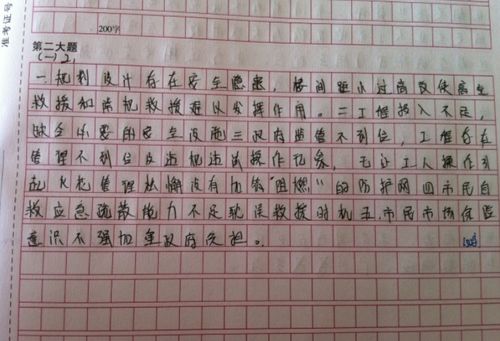 准考证号
200字
第二大题
(一) 2、
一规划设计存在安全隐患，楼间距小过高致使高空
救援和直机救援难以发挥作用。二工程投入不足，
缺乏必要的安全设施三政府监管不到位，工程存在
管理不到位及违规违法操作现象，无证工人操作引
起火花管理松懈没有加装“阻燃”的防护网四市民自
救应急疏散能力不足耽误救援时机五市民市场保险
意识不强加重政府负担。